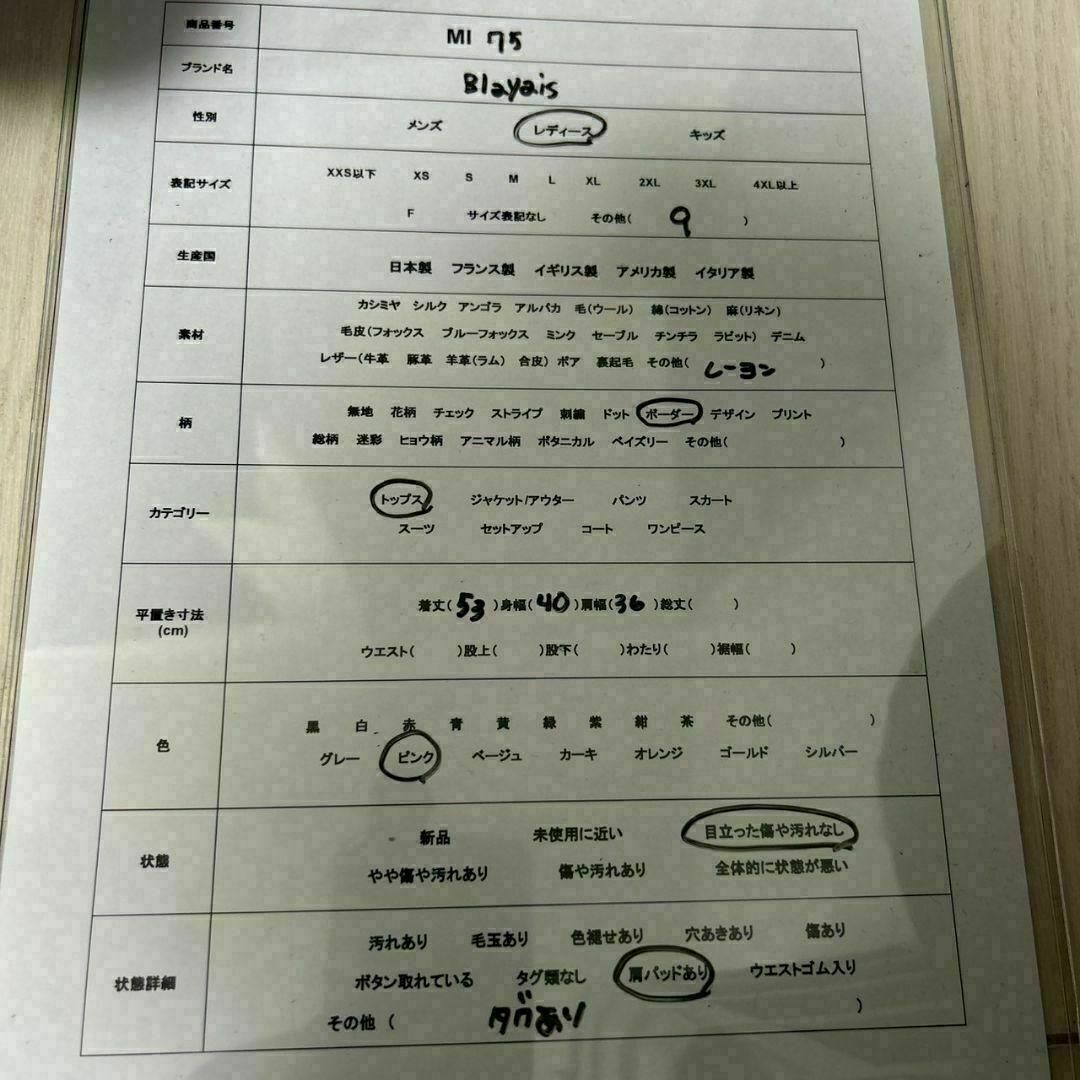 商品番号 MI 75
ブランド名 Blayais
性別 メンズ レディース キッズ
表記サイズ XXS以下 XS S M L XL 2XL 3XL 4XL以上
F サイズ表記なし その他( 9 )
生産国 日本製 フランス製 イギリス製 アメリカ製 イタリア製
カシミヤ シルク アンゴラ アルパカ 毛(ウール) 綿(コットン) 麻(リネン)
素材 毛皮(フォックス ブルーフォックス ミンク セーブル チンチラ ラビット) デニム
レザー(牛革 豚革 羊革(ラム) 合皮) ボア 裏起毛 その他( レーヨン )
柄 無地 花柄 チェック ストライプ 刺繍 ドット ボーダー デザイン プリント
総柄 迷彩 ヒョウ柄 アニマル柄 ボタニカル ペイズリー その他( )
カテゴリー トップス ジャケット/アウター パンツ スカート
スーツ セットアップ コート ワンピース
平置き寸法 着丈( 53 )身幅( 40 )肩幅( 36 )総丈( )
(cm) ウエスト( )股上( )股下( )わたり( )裾幅( )
色 黒 白 赤 青 黄 緑 紫 紺 茶 その他( )
グレー ピンク ベージュ カーキ オレンジ ゴールド シルバー
状態 新品 未使用に近い 目立った傷や汚れなし
やや傷や汚れあり 傷や汚れあり 全体的に状態が悪い
汚れあり 毛玉あり 色褪せあり 穴あきあり 傷あり
状態詳細 ボタン取れている タグ類なし 肩パッドあり ウエストゴム入り
その他 ( タグあり )